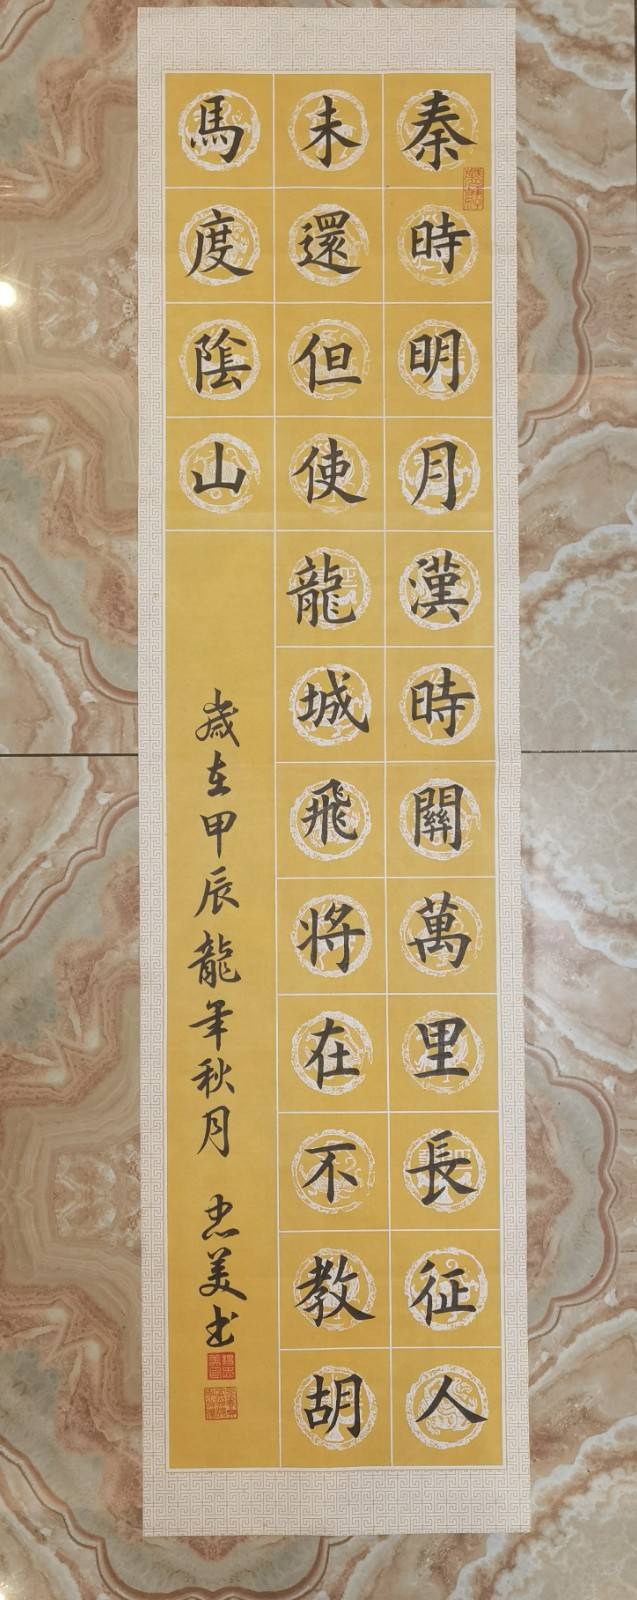 秦時明月漢時關萬里長征人
未還但使龍城飛将在不教胡
馬度陰山
歲在甲辰龍年秋月 忠美书